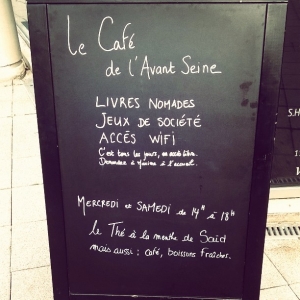 Le Café
de l'Avant Seine
LIVRES NOMADES
JEUX DE SOCIÉTÉ
ACCÈS WIFI
C'est tous les jours, en accès libre.
Demandez à l'accueil.
MERCREDI et SAMEDI de 14H à 18H
le Thé à la menthe de Saïd
mais aussi : café, boissons fraîches.
S.H